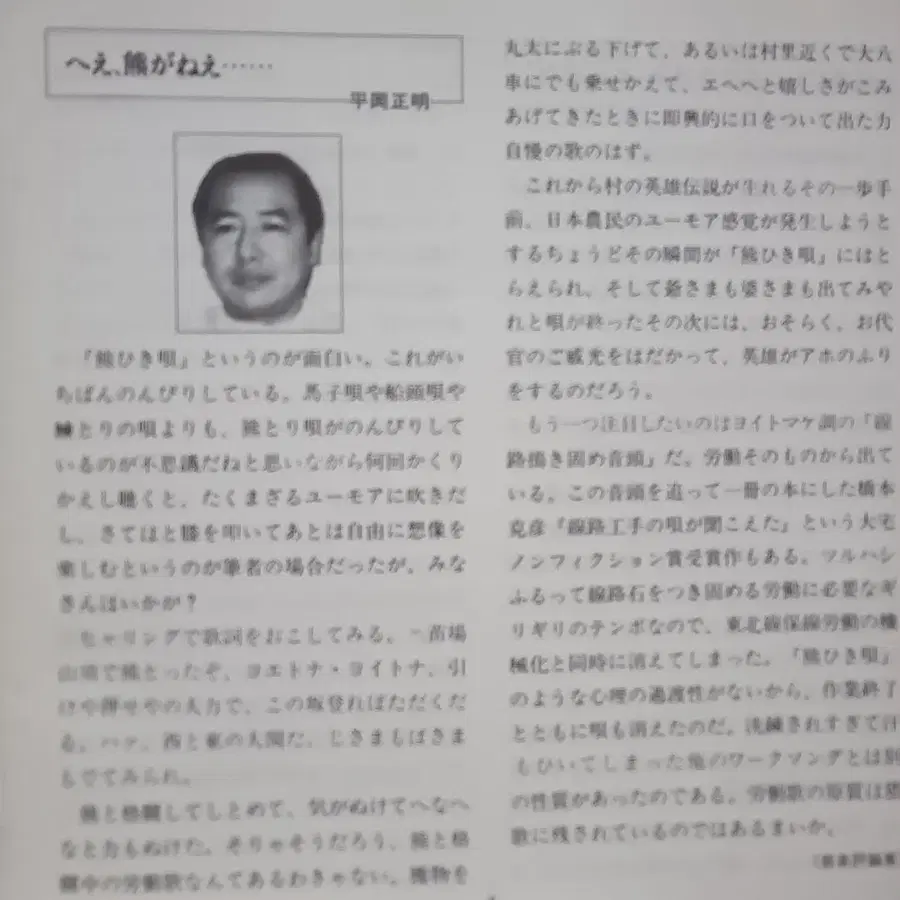 へえ、熊がねえ……
平岡正明
「熊ひき唄」というのが面白い。これがい
ちばんのんびりしている。馬子唄や船頭唄や
とりの唄よりも、熊とり唄がのんびりして
いるのが不思議だねと思いながら何回かくり
かえし聴くと、たくまざるユーモアに吹きだ
し、さてはと膝を叩いてあとは自由に想像を
楽しむというのが筆者の場合だったが、みな
さんはいかが？
ヒヤリングで歌詞をおこしてみる。苗場
山頂で熊とったぞ、ヨエトナ・ヨイトナ、引
けや押せやの人力で、この坂登ればただくだ
る。ハァ、西と東の大関だ、じさまもばさま
もでてみられ。
熊と格闘してしとめて、気がぬけてへなへ
なと力もぬけた。そりゃそうだろう、熊と格
闘中の労働歌なんてあるわきゃない。獲物を
丸太にぶる下げて、あるいは村里近くで大八
車にでも乗せかえて、エヘヘと嬉しさがこみ
あげてきたときに即興的に口をついて出た力
自慢の歌のはず。
これから村の英雄伝説が生れるその一歩手
前、日本農民のユーモア感覚が発生しようと
するちょうどその瞬間が「熊ひき唄」にはと
らえられ、そして爺さまも婆さまも出てみや
れと唄が終ったその次には、おそらく、お代
官のご威光をはだかって、英雄がアホのふり
をするのだろう。
もう一つ注目したいのはヨイトマケ調の「線
路搗き固め音頭」だ。労働そのものから出て
いる。この音頭を追って一冊の本にした橋本
克彦『線路工手の唄が聞こえた』という大宅
ノンフィクション賞受賞作もある。ツルハシ
ふるって線路石をつき固める労働に必要なギ
リギリのテンポなので、東北線保線労働の機
械化と同時に消えてしまった。「熊ひき唄」
のような心理の過渡性がないから、作業終了
とともに唄も消えたのだ。洗練されすぎて汗
もひいてしまった他のワークソングとは別
の性質があったのである。労働歌の原質は
歌に残されているのではあるまいか。